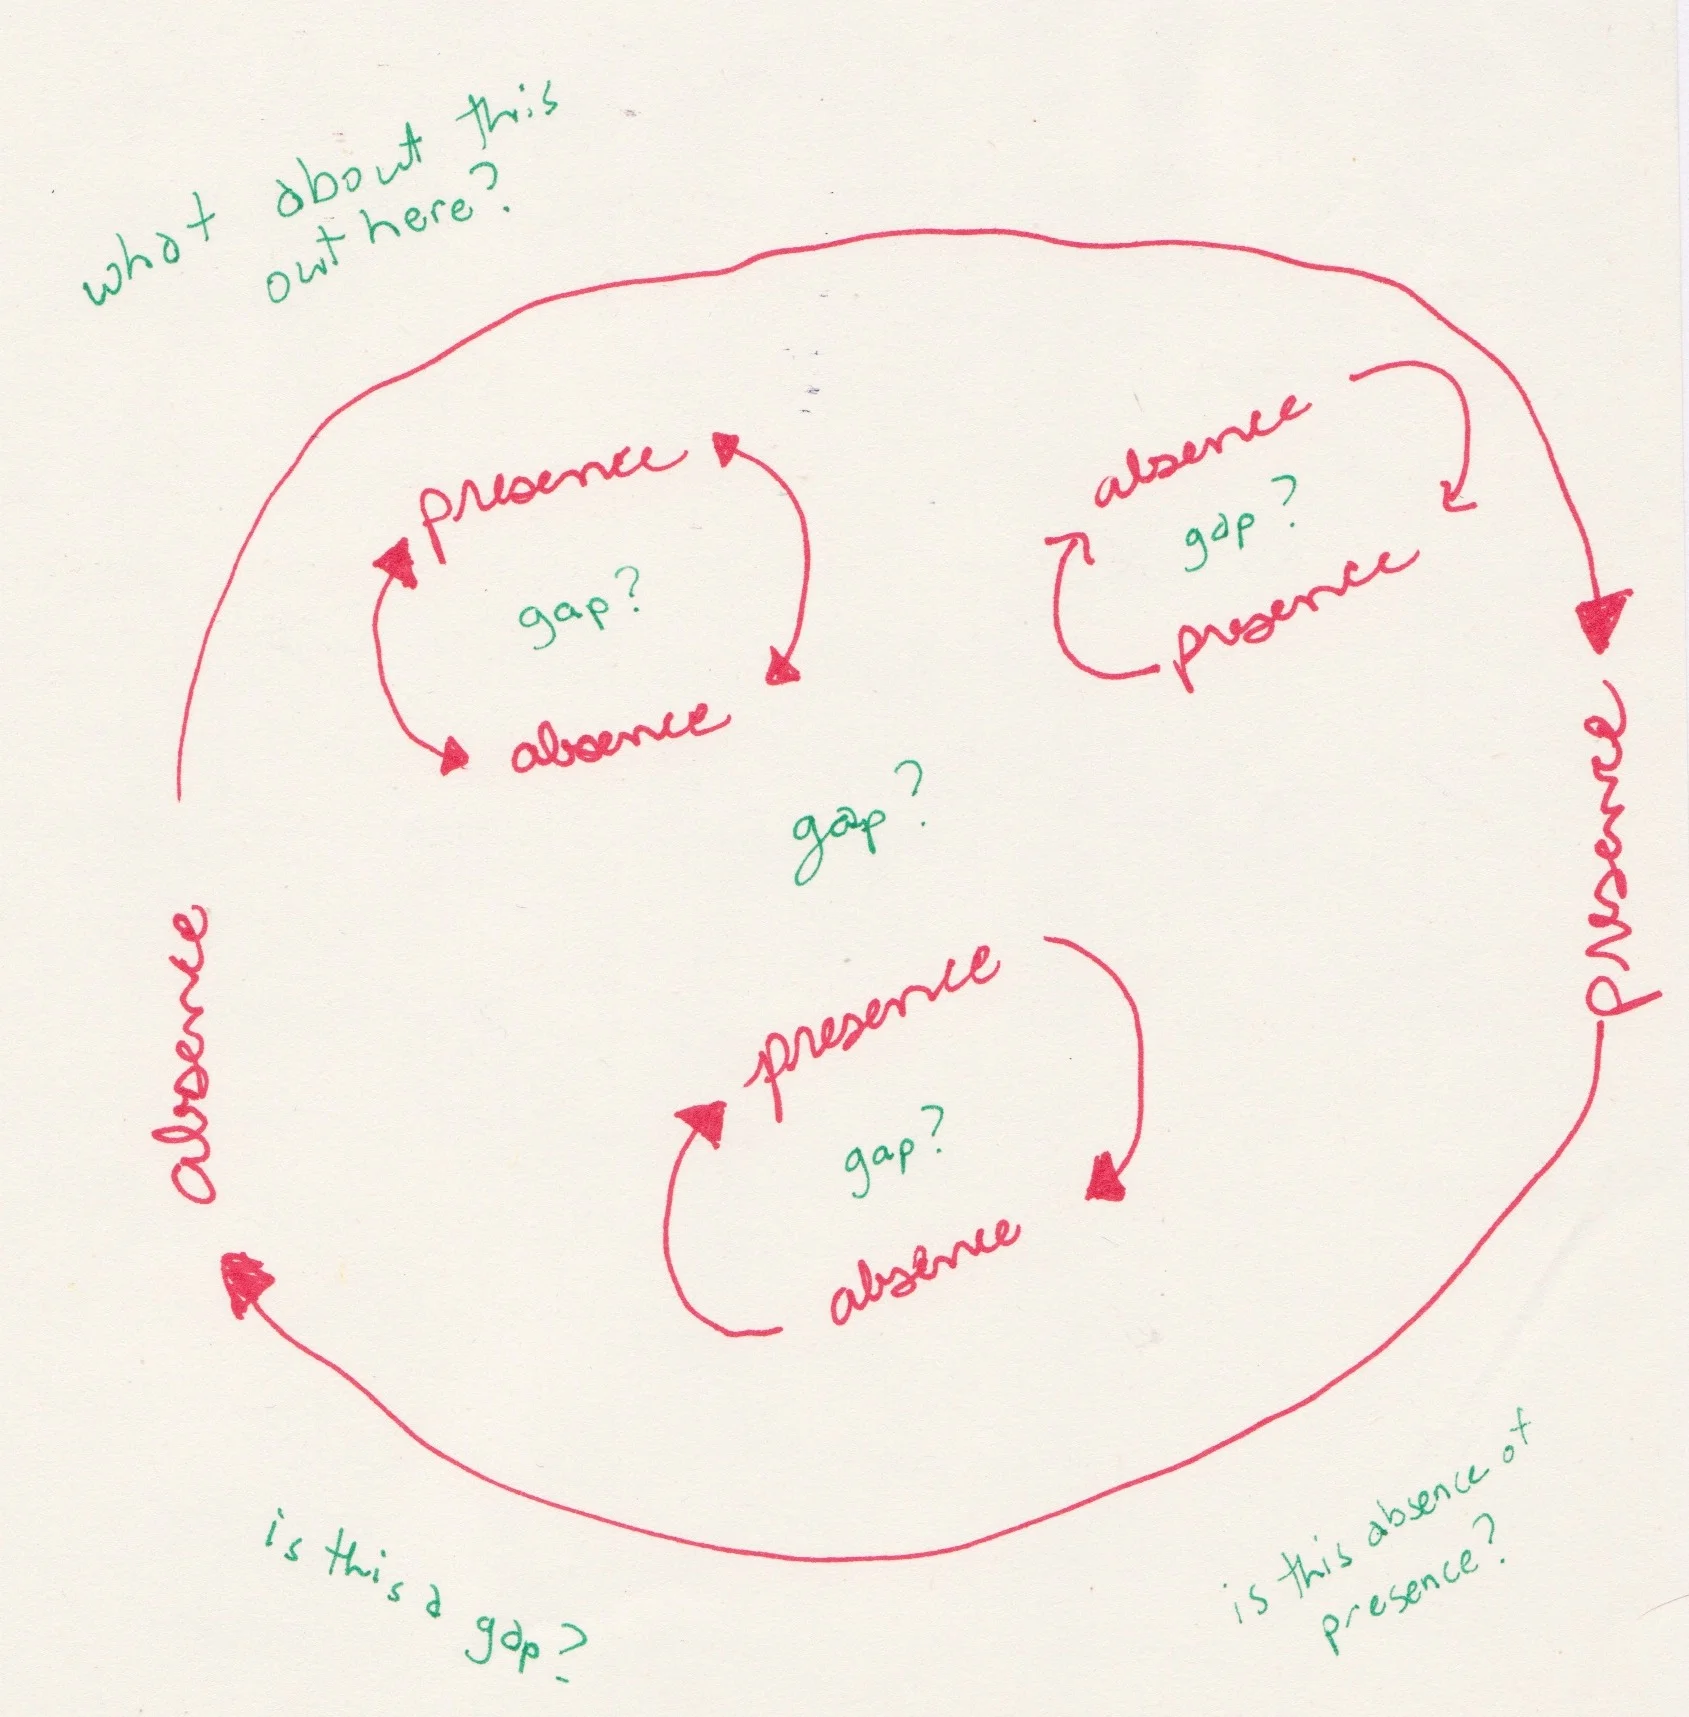 what about this
out here?
presence
gap?
absence
absence
gap?
presence
gap?
absence
presence
presence
gap?
absence
is this a gap?
is this absence of
presence?